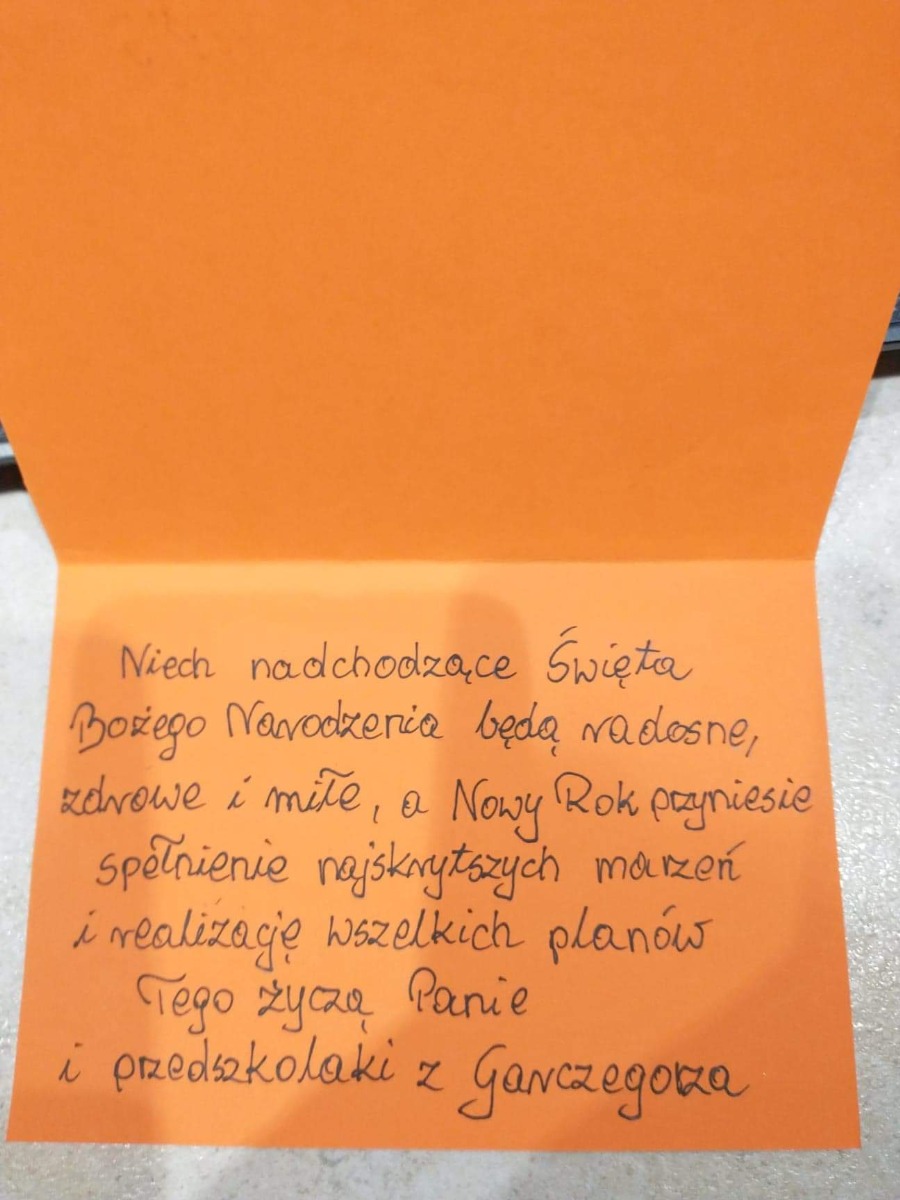 Niech nadchodzące Święta
Bożego Narodzenia będą radosne,
zdrowe i miłe, a Nowy Rok przyniesie
spełnienie najskrytszych marzeń
i realizację wszelkich planów
Tego życzą Panie
i przedszkolaki z Garczegorza